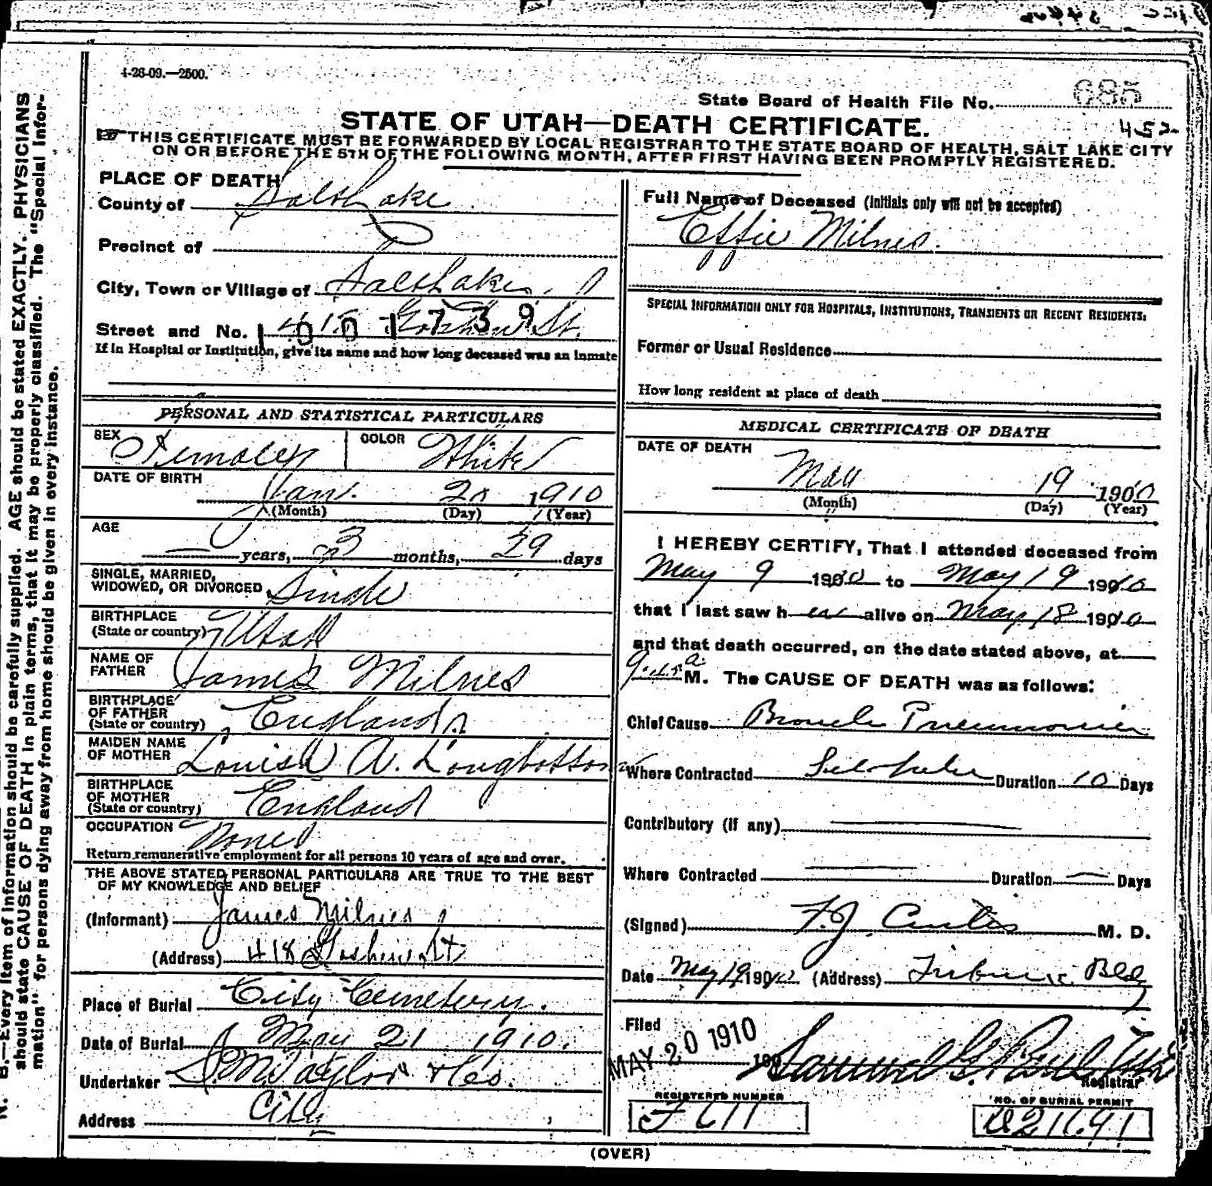 4-26-09.—2500.
State Board of Health File No. 685
452
STATE OF UTAH—DEATH CERTIFICATE.
THIS CERTIFICATE MUST BE FORWARDED BY LOCAL REGISTRAR TO THE STATE BOARD OF HEALTH, SALT LAKE CITY
ON OR BEFORE THE 5TH OF THE FOLLOWING MONTH, AFTER FIRST HAVING BEEN PROMPTLY REGISTERED.
N. B.—Every item of information should be carefully supplied. AGE should be stated EXACTLY. PHYSICIANS
should state CAUSE OF DEATH in plain terms, that it may be properly classified. The "Special Infor-
mation" for persons dying away from home should be given in every instance.
PLACE OF DEATH
County of Salt Lake
Precinct of
City, Town or Village of Salt Lake
Street and No. St.
1001739
If in Hospital or Institution, give its name and how long deceased was an inmate
PERSONAL AND STATISTICAL PARTICULARS
SEX Female COLOR White
DATE OF BIRTH Jan. 20 1910
(Month) (Day) (Year)
AGE
— years, 3 months, 29 days
SINGLE, MARRIED,
WIDOWED, OR DIVORCED Single
BIRTHPLACE
(State or country) Utah
NAME OF
FATHER James Milnes
BIRTHPLACE
OF FATHER
(State or country) England
MAIDEN NAME
OF MOTHER Louisa A. Longbottom
BIRTHPLACE
OF MOTHER
(State or country) England
OCCUPATION None
Return remunerative employment for all persons 10 years of age and over.
THE ABOVE STATED PERSONAL PARTICULARS ARE TRUE TO THE BEST
OF MY KNOWLEDGE AND BELIEF
(Informant) James Milnes
(Address) 418 St
Place of Burial City Cemetery.
Date of Burial May 21 1910.
Undertaker S. M. Taylor & Co.
Address City
Full Name of Deceased (Initials only will not be accepted)
Effie Milnes.
SPECIAL INFORMATION ONLY FOR HOSPITALS, INSTITUTIONS, TRANSIENTS OR RECENT RESIDENTS:
Former or Usual Residence
How long resident at place of death
MEDICAL CERTIFICATE OF DEATH
DATE OF DEATH
May 19 1910
(Month) (Day) (Year)
I HEREBY CERTIFY, That I attended deceased from
May 9 1910 to May 19 1910
that I last saw her alive on May 18 1910
and that death occurred, on the date stated above, at
9.15 a. M. The CAUSE OF DEATH was as follows:
Chief Cause Broncho Pneumonia
Where Contracted Salt Lake Duration 10 Days
Contributory (If any) —
Where Contracted — Duration — Days
(Signed) F. J. Curtis M. D.
Date May 19 1910 (Address) Tribune Bldg
Filed
MAY 20 1910 190
Samuel G. Paul
Registrar
REGISTERED NUMBER
F 611
NO. OF BURIAL PERMIT
(OVER)